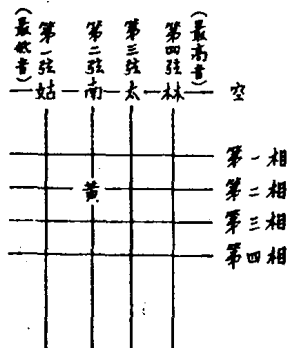 (最低音)
第一弦
第二弦
第三弦
第四弦
(最高音)
姑 南 太 林 空
第一相
黄 第二相
第三相
第四相